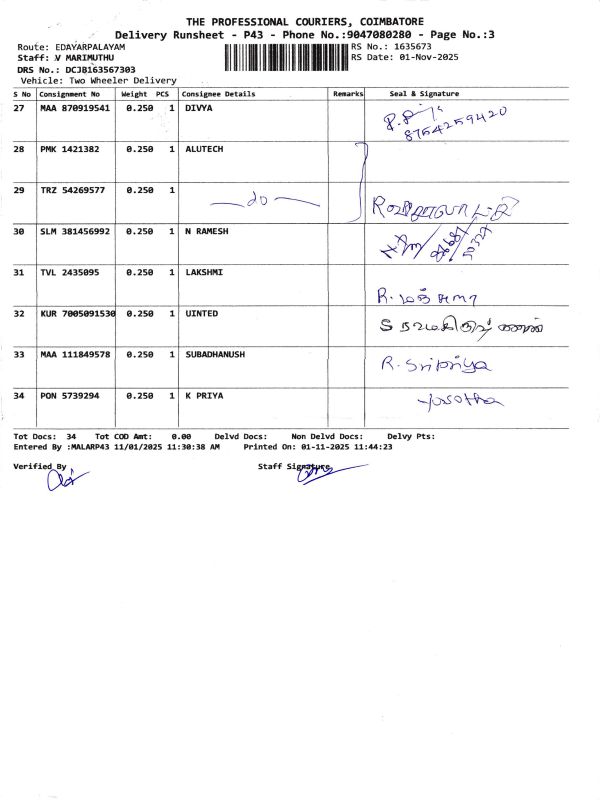 THE PROFESSIONAL COURIERS, COIMBATORE
Delivery Runsheet - P43 - Phone No.:9047080280 - Page No.:3
Route: EDAYARPALAYAM RS No.: 1635673
Staff: V MARIMUTHU RS Date: 01-Nov-2025
DRS No.: DCJB163567303
Vehicle: Two Wheeler Delivery
S No Consignment No Weight PCS Consignee Details Remarks Seal & Signature
27 MAA 870919541 0.250 1 DIVYA
8754259420
28 PMK 1421382 0.250 1 ALUTECH
29 TRZ 54269577 0.250 1 do
30 SLM 381456992 0.250 1 N RAMESH
31 TVL 2435095 0.250 1 LAKSHMI R. மஞ்சுளா
32 KUR 7005091530 0.250 1 UINTED
33 MAA 111849578 0.250 1 SUBADHANUSH R. Sripriya
34 PON 5739294 0.250 1 K PRIYA Yasotha
Tot Docs: 34 Tot COD Amt: 0.00 Delvd Docs: Non Delvd Docs: Delvy Pts:
Entered By :MALARP43 11/01/2025 11:30:38 AM Printed On: 01-11-2025 11:44:23
Verified By Staff Signature